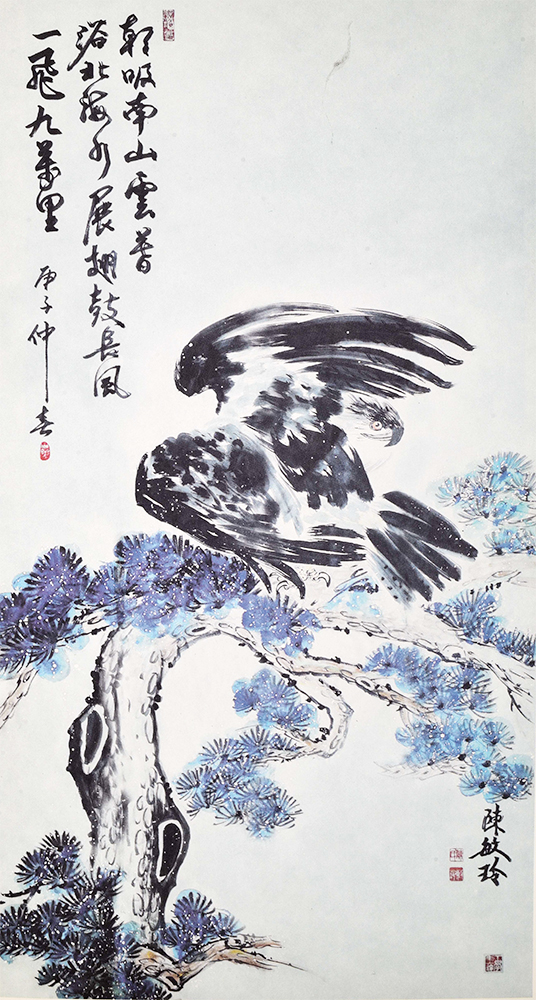 朝吸南山雲暮
浴北海水展翅鼓長風
一飛九萬里
庚子仲春
陳敏玲